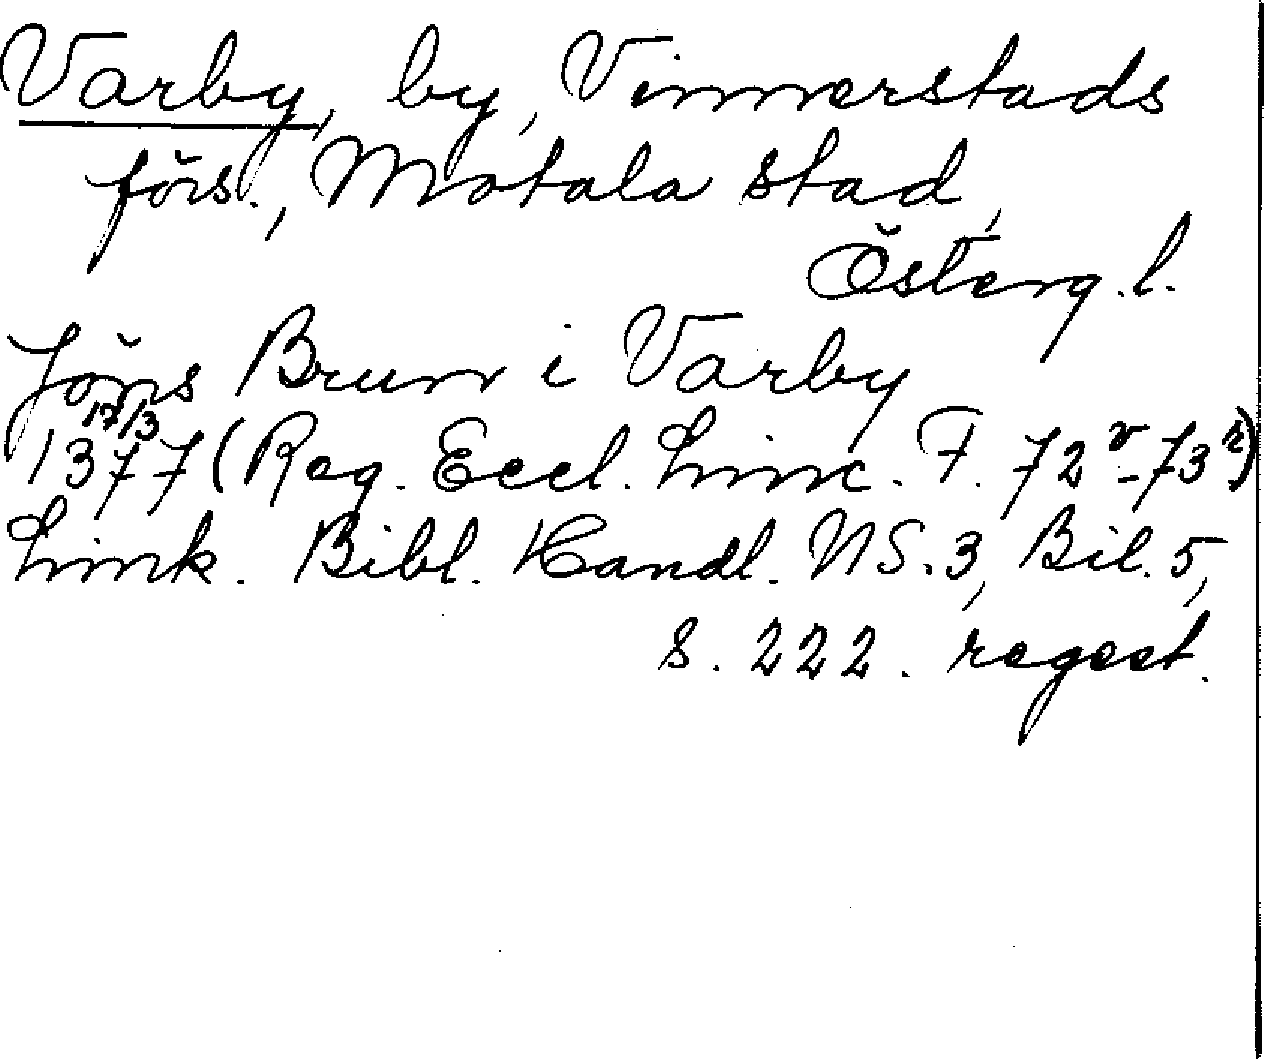 Varby, by, Vinnerstads
förs., Motala stad,
Österg.l.
Jöns Brun i Varby
17/3
1377 (Reg. Eccl. Linc. F. 72v-73r)
Link. Bibl. Handl. NS.3, Bil. 5,
s. 222. regest.